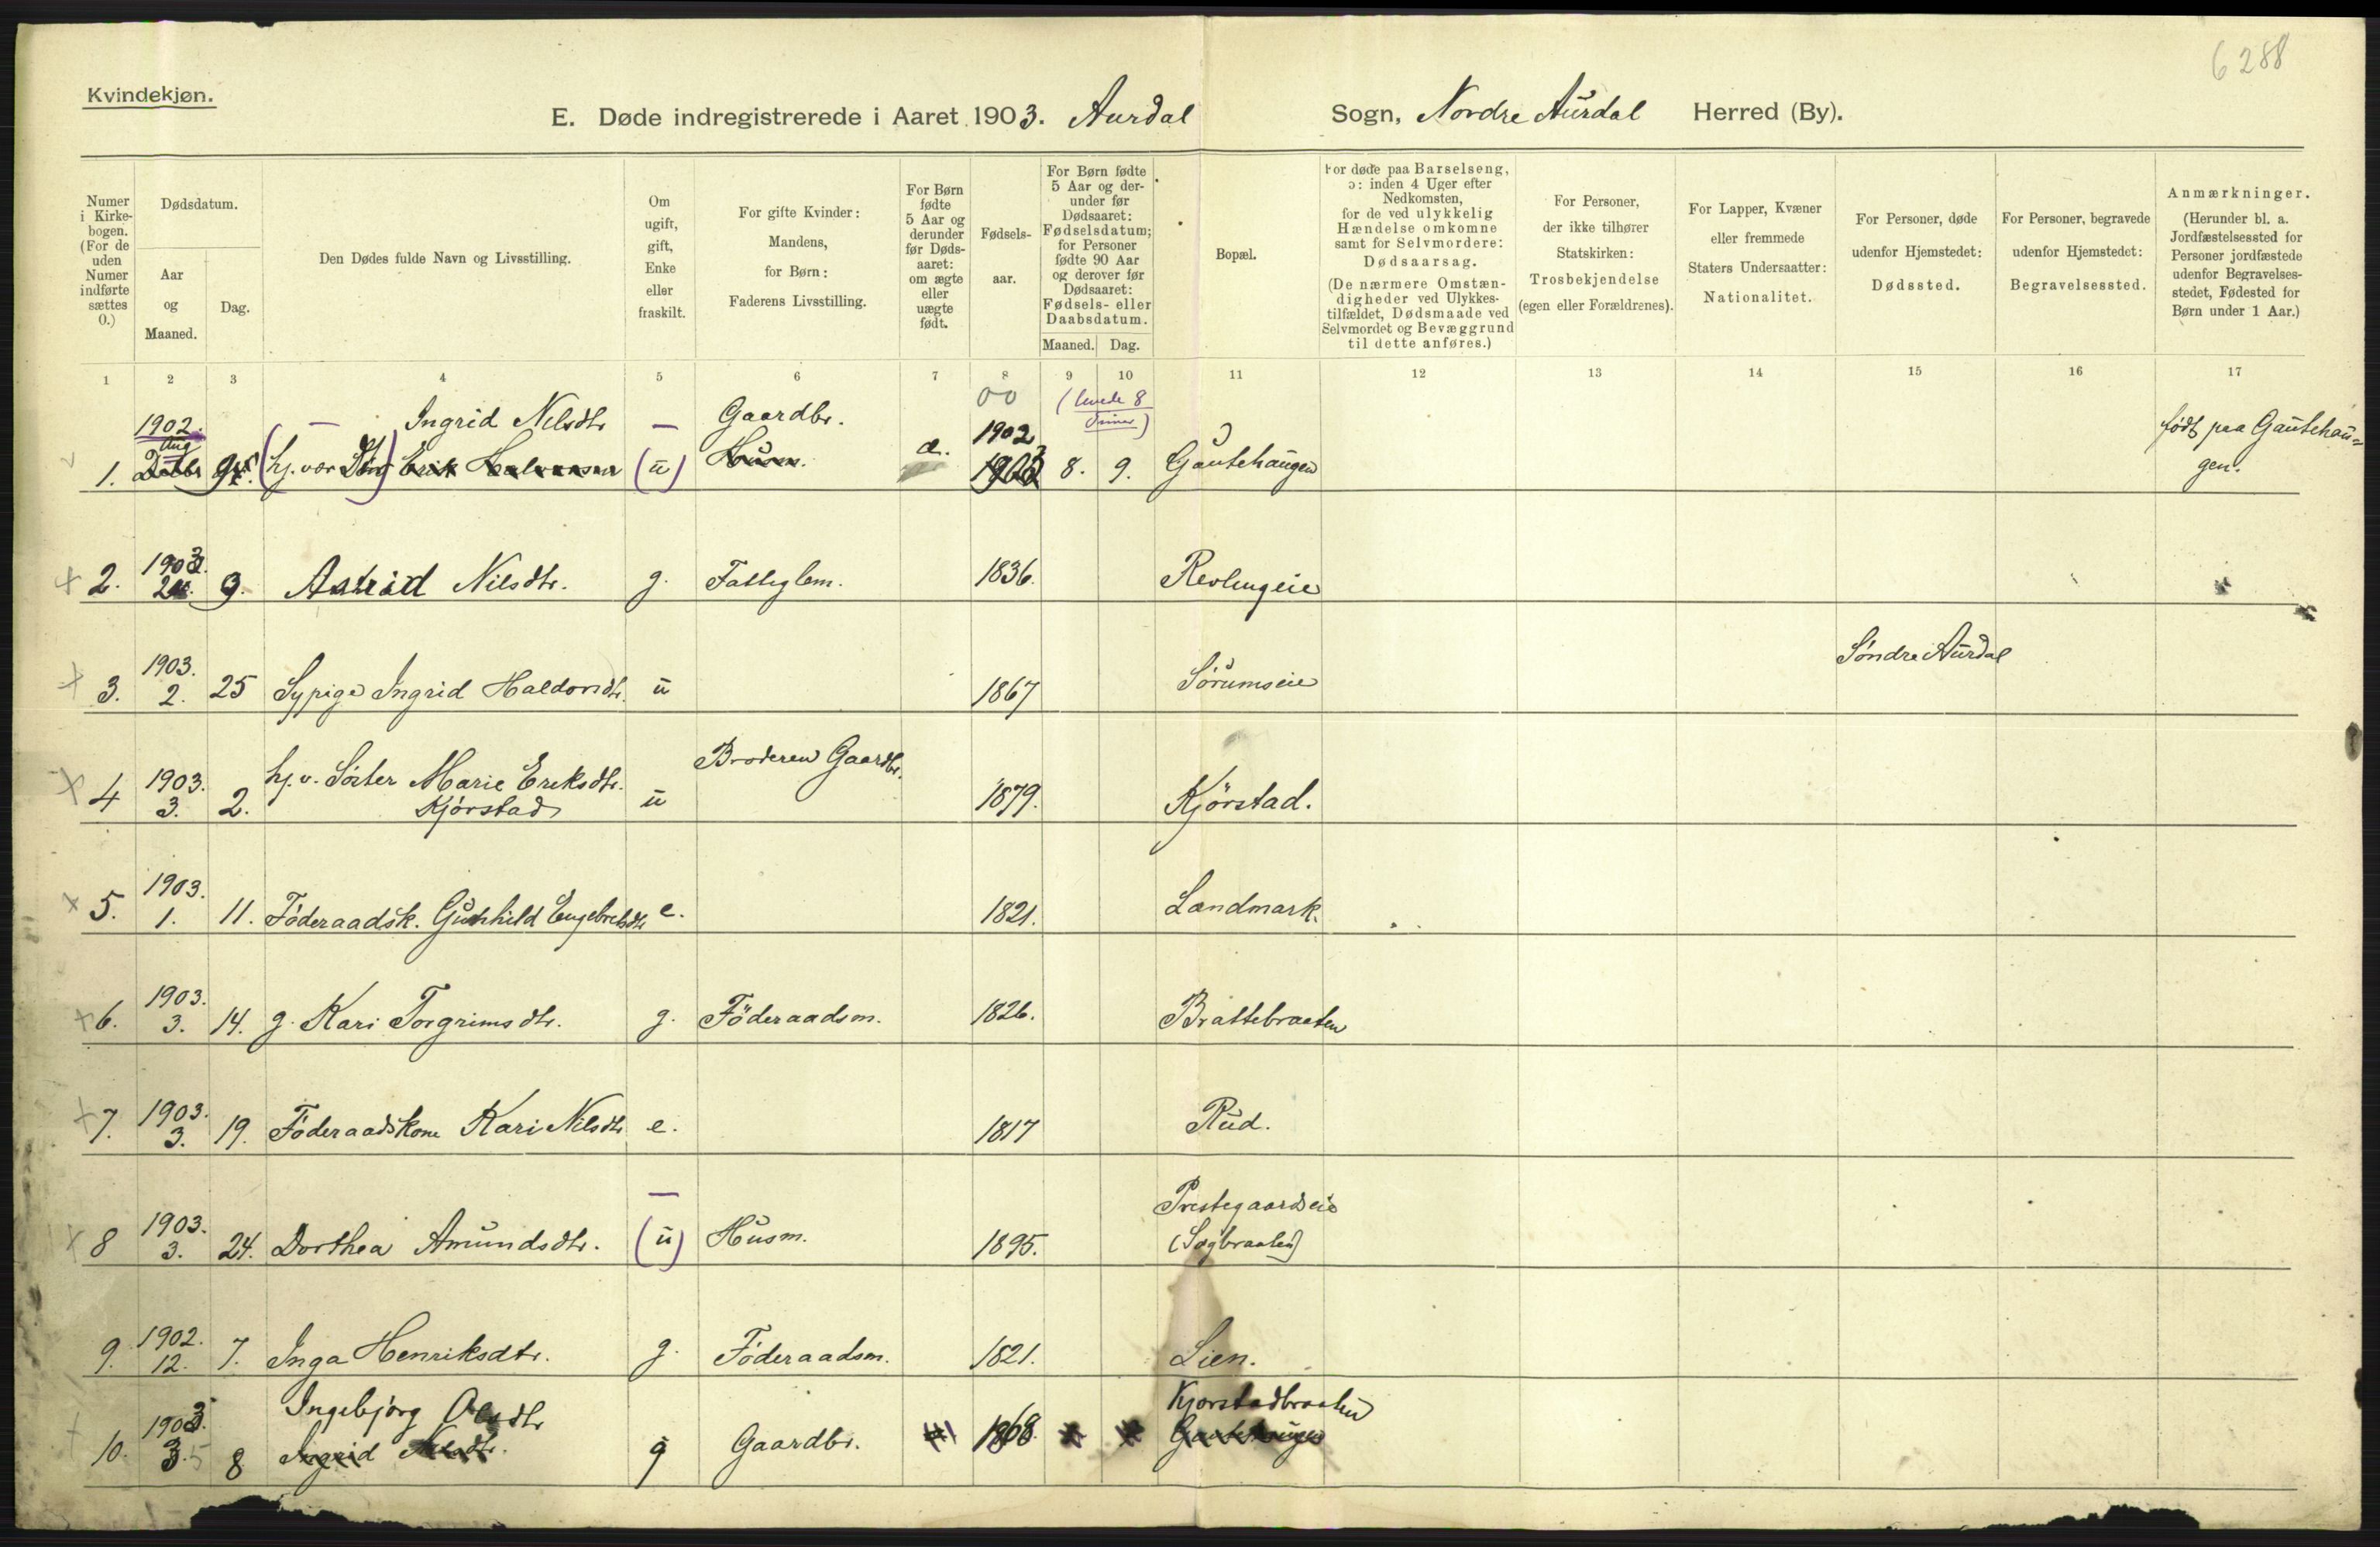 6288
Kvindekjøn.
E. Døde indregistrerede i Aaret 1903. Aurdal Sogn, Nordre Aurdal Herred (By).
Numer i Kirkebogen. (For de uden Numer indførte sættes 0.)
Dødsdatum.
Aar og Maaned.
Dag.
Den Dødes fulde Navn og Livsstilling.
Om ugift, gift, Enke eller fraskilt.
For gifte Kvinder: Mandens, for Børn: Faderens Livsstilling.
For Børn fødte 5 Aar og derunder før Dødsaaret: om ægte eller uægte født.
Fødselsaar.
For Børn fødte 5 Aar og derunder før Dødsaaret: Fødselsdatum; for Personer fødte 90 Aar og derover før Dødsaaret: Fødsels- eller Daabsdatum.
Maaned. Dag.
Bopæl.
For døde paa Barselseng, ɔ: inden 4 Uger efter Nedkomsten, for de ved ulykkelig Hændelse omkomne samt for Selvmordere: Dødsaarsag.
(De nærmere Omstændigheder ved Ulykkestilfældet, Dødsmaade ved Selvmordet og Bevæggrund til dette anføres.)
For Personer, der ikke tilhører Statskirken: Trosbekjendelse (egen eller Forældrenes).
For Lapper, Kvæner eller fremmede Staters Undersaatter: Nationalitet.
For Personer, døde udenfor Hjemstedet: Dødssted.
For Personer, begravede udenfor Hjemstedet: Begravelsessted.
Anmærkninger.
(Herunder bl. a. Jordfæstelsessted for Personer jordfæstede udenfor Begravelsesstedet, Fødested for Børn under 1 Aar.)
1 2 3 4 5 6 7 8 9 10 11 12 13 14 15 16 17
00 (levede 8 Timer)
1902. Ingrid Nilsdtr — Gaardbr. 1902 født paa Gautehau=
1. Aug 9. (hj. var (u) Husm. æ. 1903 8. 9. Gautehaugen gen.
2. 1903. 2. 9. Astrid Nilsdtr. g. Fattiglem. 1836. Revlingeie
3. 1903. 2. 25 Sypige Ingrid Haldorsdtr. u 1867 Sörumseie Søndre Aurdal
4 1903. 3. 2. hj. v. Söster Marie Eriksdtr. u Broderen Gaardbr. 1879. Kjörstad.
Kjörstad
5. 1903. 1. 11. Föderaadsk. Gunhild Engebretsdtr e. 1821. Landmark.
6. 1903. 3. 14. g. Kari Torgrimsdtr. g. Föderaadsm. 1826. Brattebraaten
7. 1903. 3. 19. Föderaadskone Kari Nilsdtr e. 1817 Rud.
8 1903. 3. 24. Dorthea Amundsdtr. (u) Husm. 1895. Prestegaardseie
(Sagbraaten)
9. 1902. 12. 7. Inga Henriksdtr. g. Föderaadsm. 1821. Lien.
Ingebjörg Olsdtr Kjorstadbraaten
10. 1903. 3. 8 Ingrid Nilsdtr. g Gaardbr. 1868. Gautehaugen